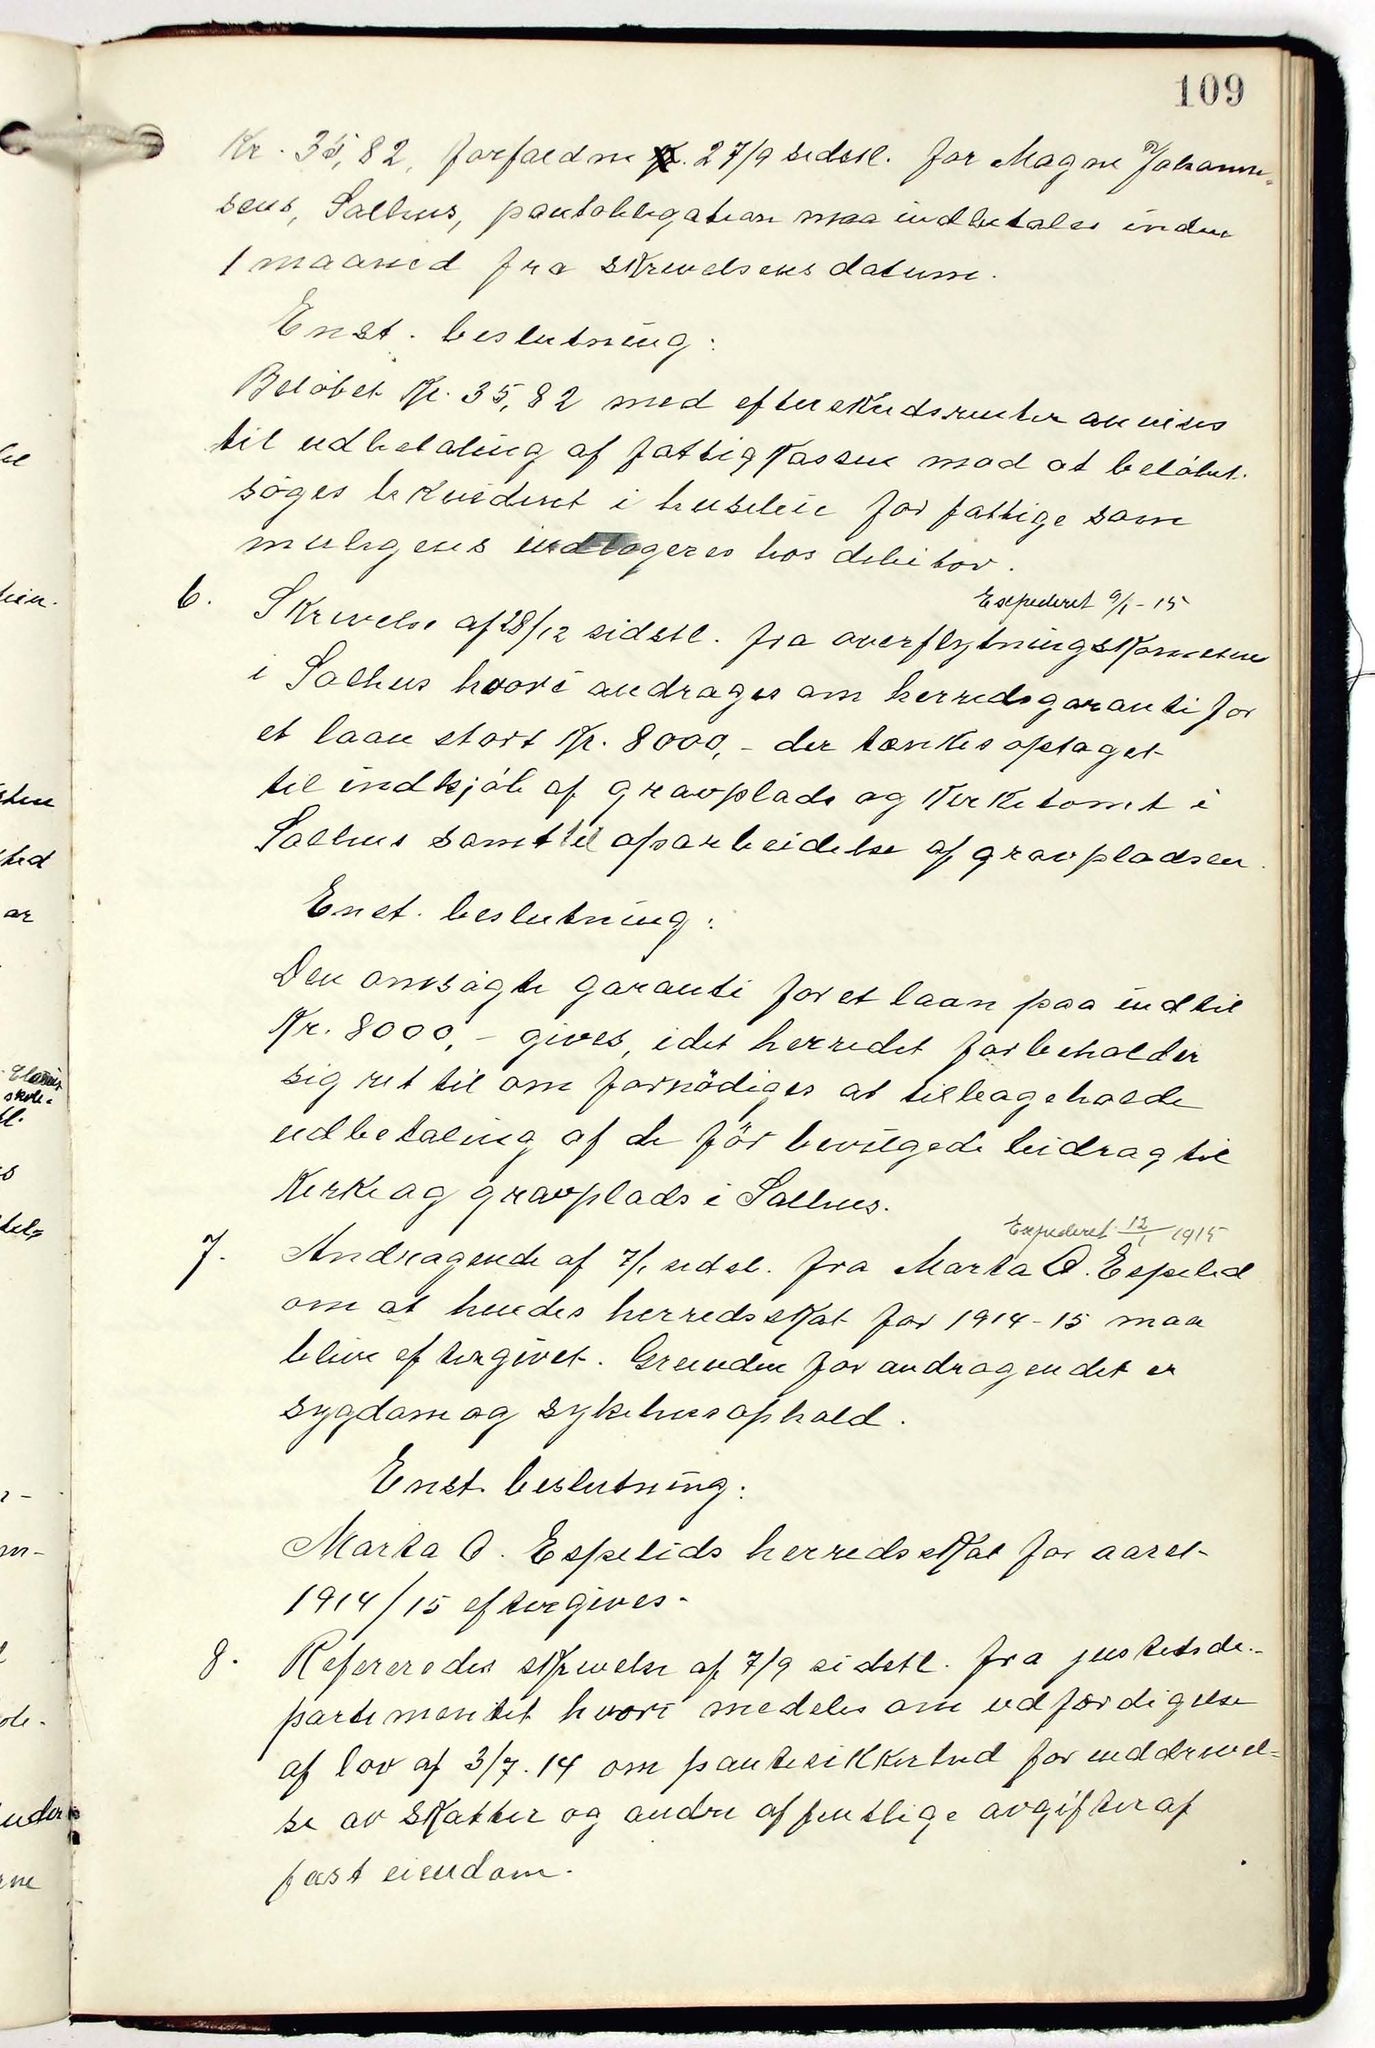 109
Kr. 35,82, forfaldne 27/9 sidstl. for Magne Johanne-
sens, Salhus, pantobligation maa indbetales inden
1 maaned fra skrivelsens datum.
Enst. beslutning:
Beløbet Kr. 35,82 med efterskudsrenter anvises
til udbetaling af fattigkassen mod at beløbet
søges likvideret i husleie for fattige som
muligens indlogeres hos debitor.
Expederet 9/1-15
6. Skrivelse af 28/12 sidstl. fra overflytningskomiteen
i Salhus hvori andrages om herredsgaranti for
et laan stort Kr. 8000,- der tænkes optaget
til indkjøb af gravplads og kirketomt i
Salhus samt til oparbeidelse af gravpladsen.
Enst. beslutning:
Den omsøgte garanti for et laan paa indtil
Kr. 8000,- gives, idet herredet forbeholder
sig ret til om fornødiges at tilbageholde
udbetaling af de før bevilgede bidrag til
kirke og gravplads i Salhus.
Expederet 12/1 1915
7. Andragende af 7/1 sidstl. fra Marta O. Espelid
om at hendes herredsskat for 1914-15 maa
blive eftergivet. Grunden for andragendet er
sygdom og sykehusophold.
Enst. beslutning:
Marta O. Espelids herredsskat for aaret
1914/15 eftergives.
8. Refereredes skrivelse af 7/9 sidstl. fra justitsde-
partementet hvori meddeles om udfærdigelse
af lov af 3/7.14 om pantesikkerhed for inddrivel-
se av skatter og andre offentlige avgifter af
fast eiendom.